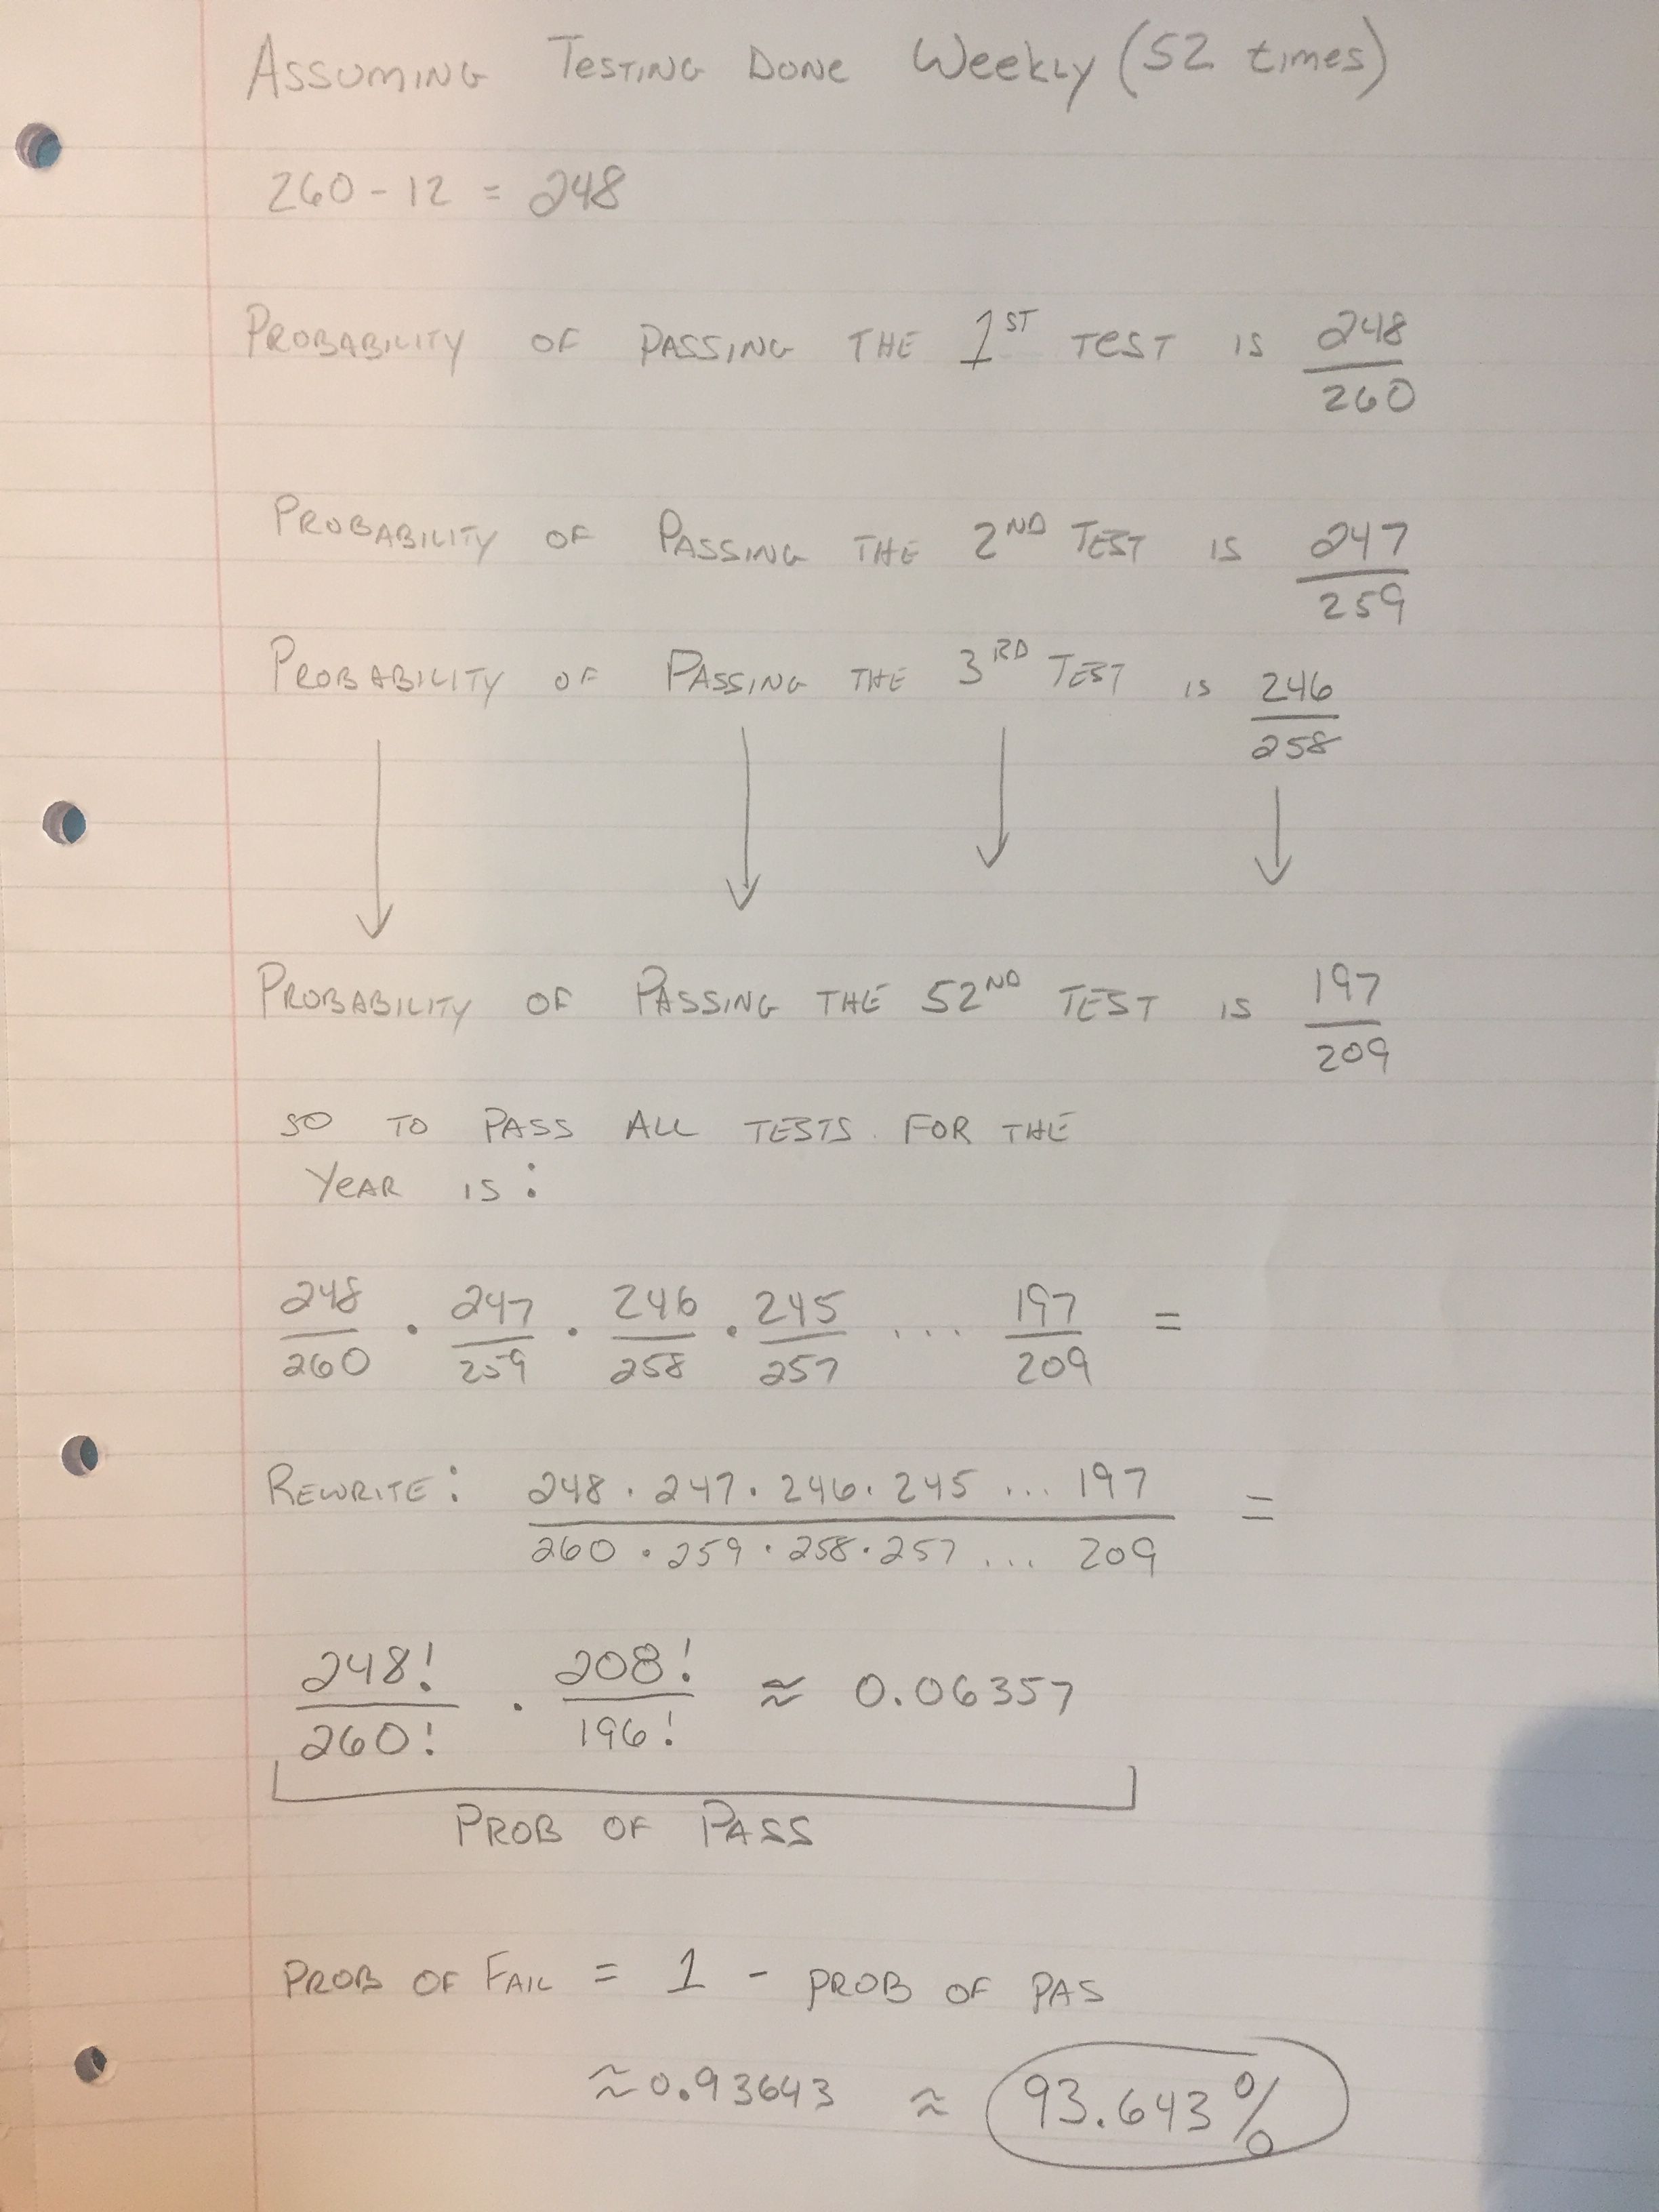 ASSUMING TESTING DONE WEEKLY (52 times)
260 - 12 = 248
PROBABILITY OF PASSING THE 1ST TEST IS 248/260
PROBABILITY OF PASSING THE 2ND TEST IS 247/259
PROBABILITY OF PASSING THE 3RD TEST IS 246/258
↓ ↓ ↓ ↓
PROBABILITY OF PASSING THE 52ND TEST IS 197/209
SO TO PASS ALL TESTS FOR THE
YEAR IS:
248/260 · 247/259 · 246/258 · 245/257 ... 197/209 =
REWRITE: 248 · 247 · 246 · 245 ... 197 / 260 · 259 · 258 · 257 ... 209 =
248!/260! · 208!/196! ≈ 0.06357
PROB OF PASS
PROB OF FAIL = 1 - PROB OF PAS
≈ 0.93643 ≈ 93.643%